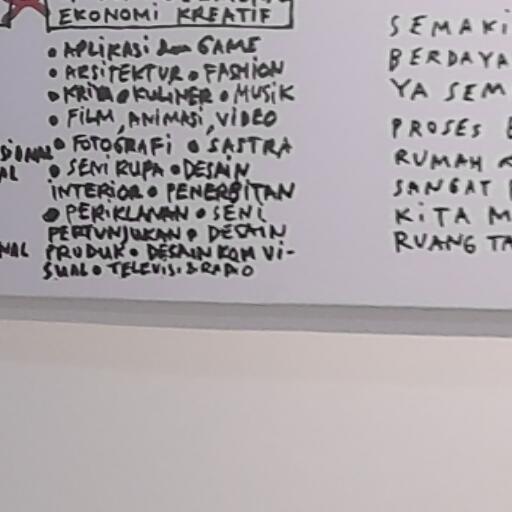 EKONOMI KREATIF
• APLIKASI dan GAME
• ARSITEKTUR • FASHION
• KRIYA • KULINER • MUSIK
• FILM, ANIMASI, VIDEO
• FOTOGRAFI • SASTRA
• SENI RUPA • DESAIN
INTERIOR • PENERBITAN
• PERIKLANAN • SENI
PERTUNJUKAN • DESAIN
PRODUK • DESAIN KOM VI-
SUAL • TELEVISI & RADIO
AL
NAL
SEMAKI
BERDAYA
YA SEM
PROSES
RUMAH
SANGAT
KITA M
RUANG TA